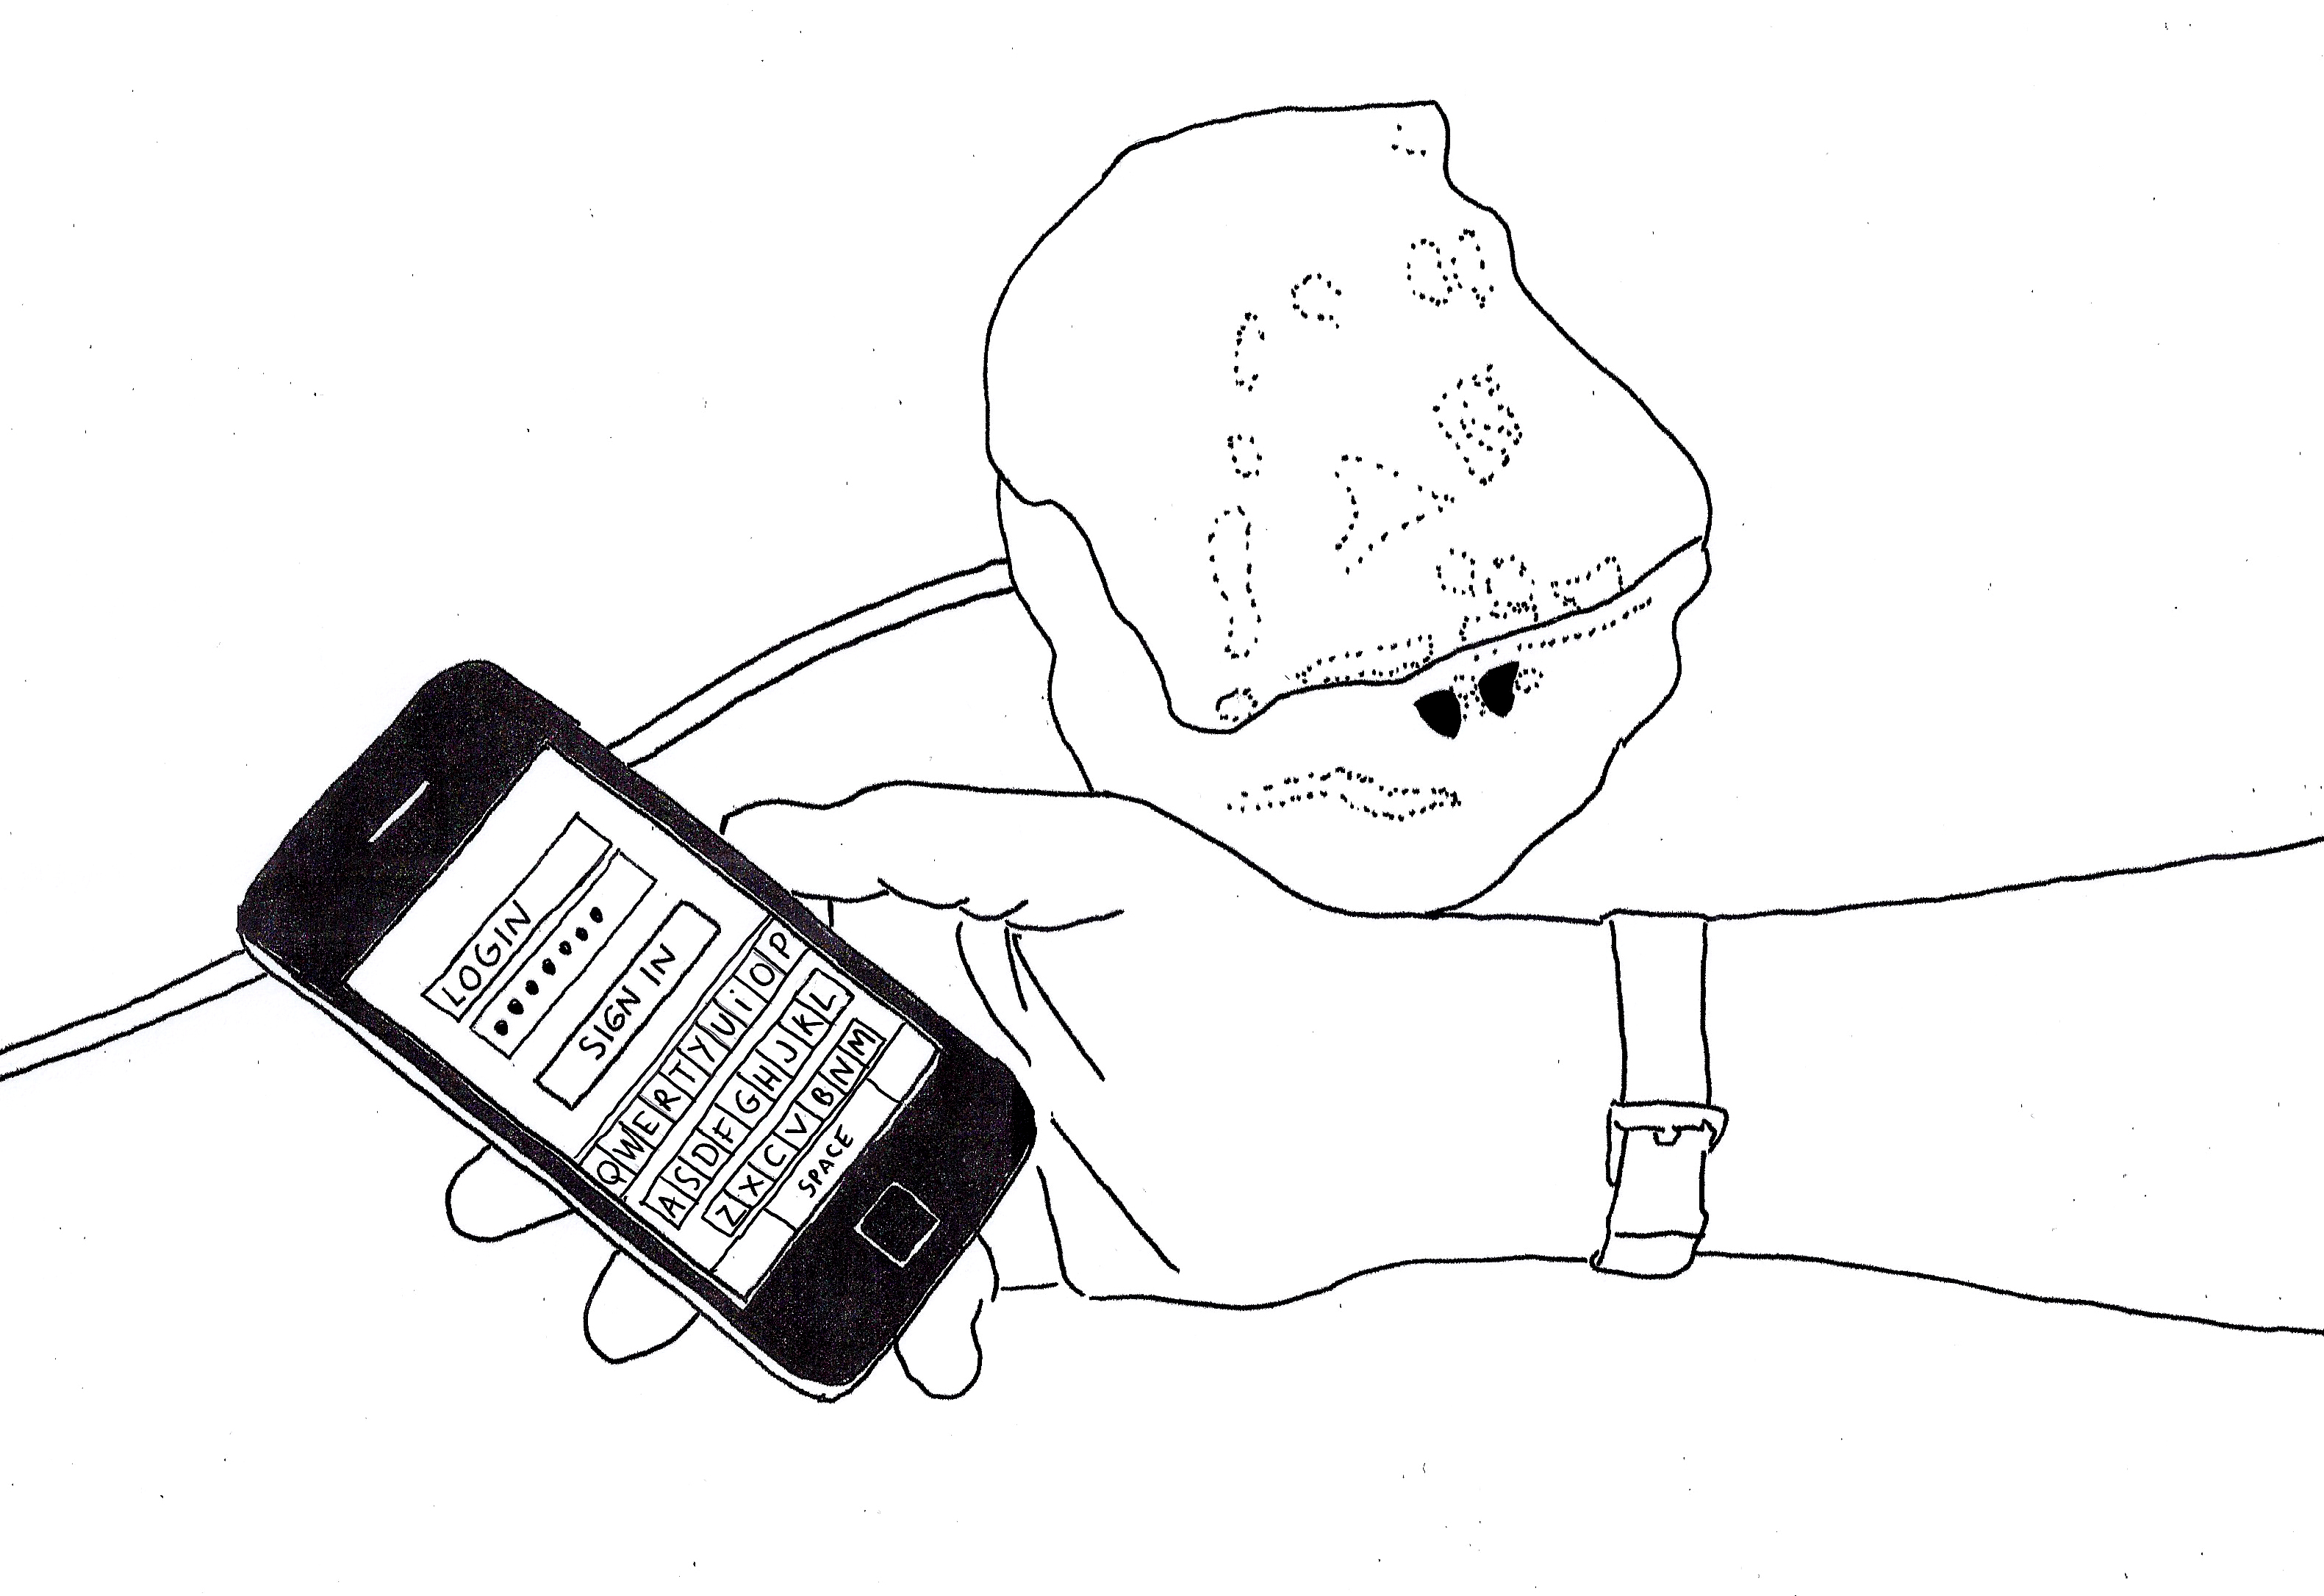 LOGIN
SIGN IN
Q W E R T Y U i O P
A S D F G H J K L
Z X C V B N M
SPACE